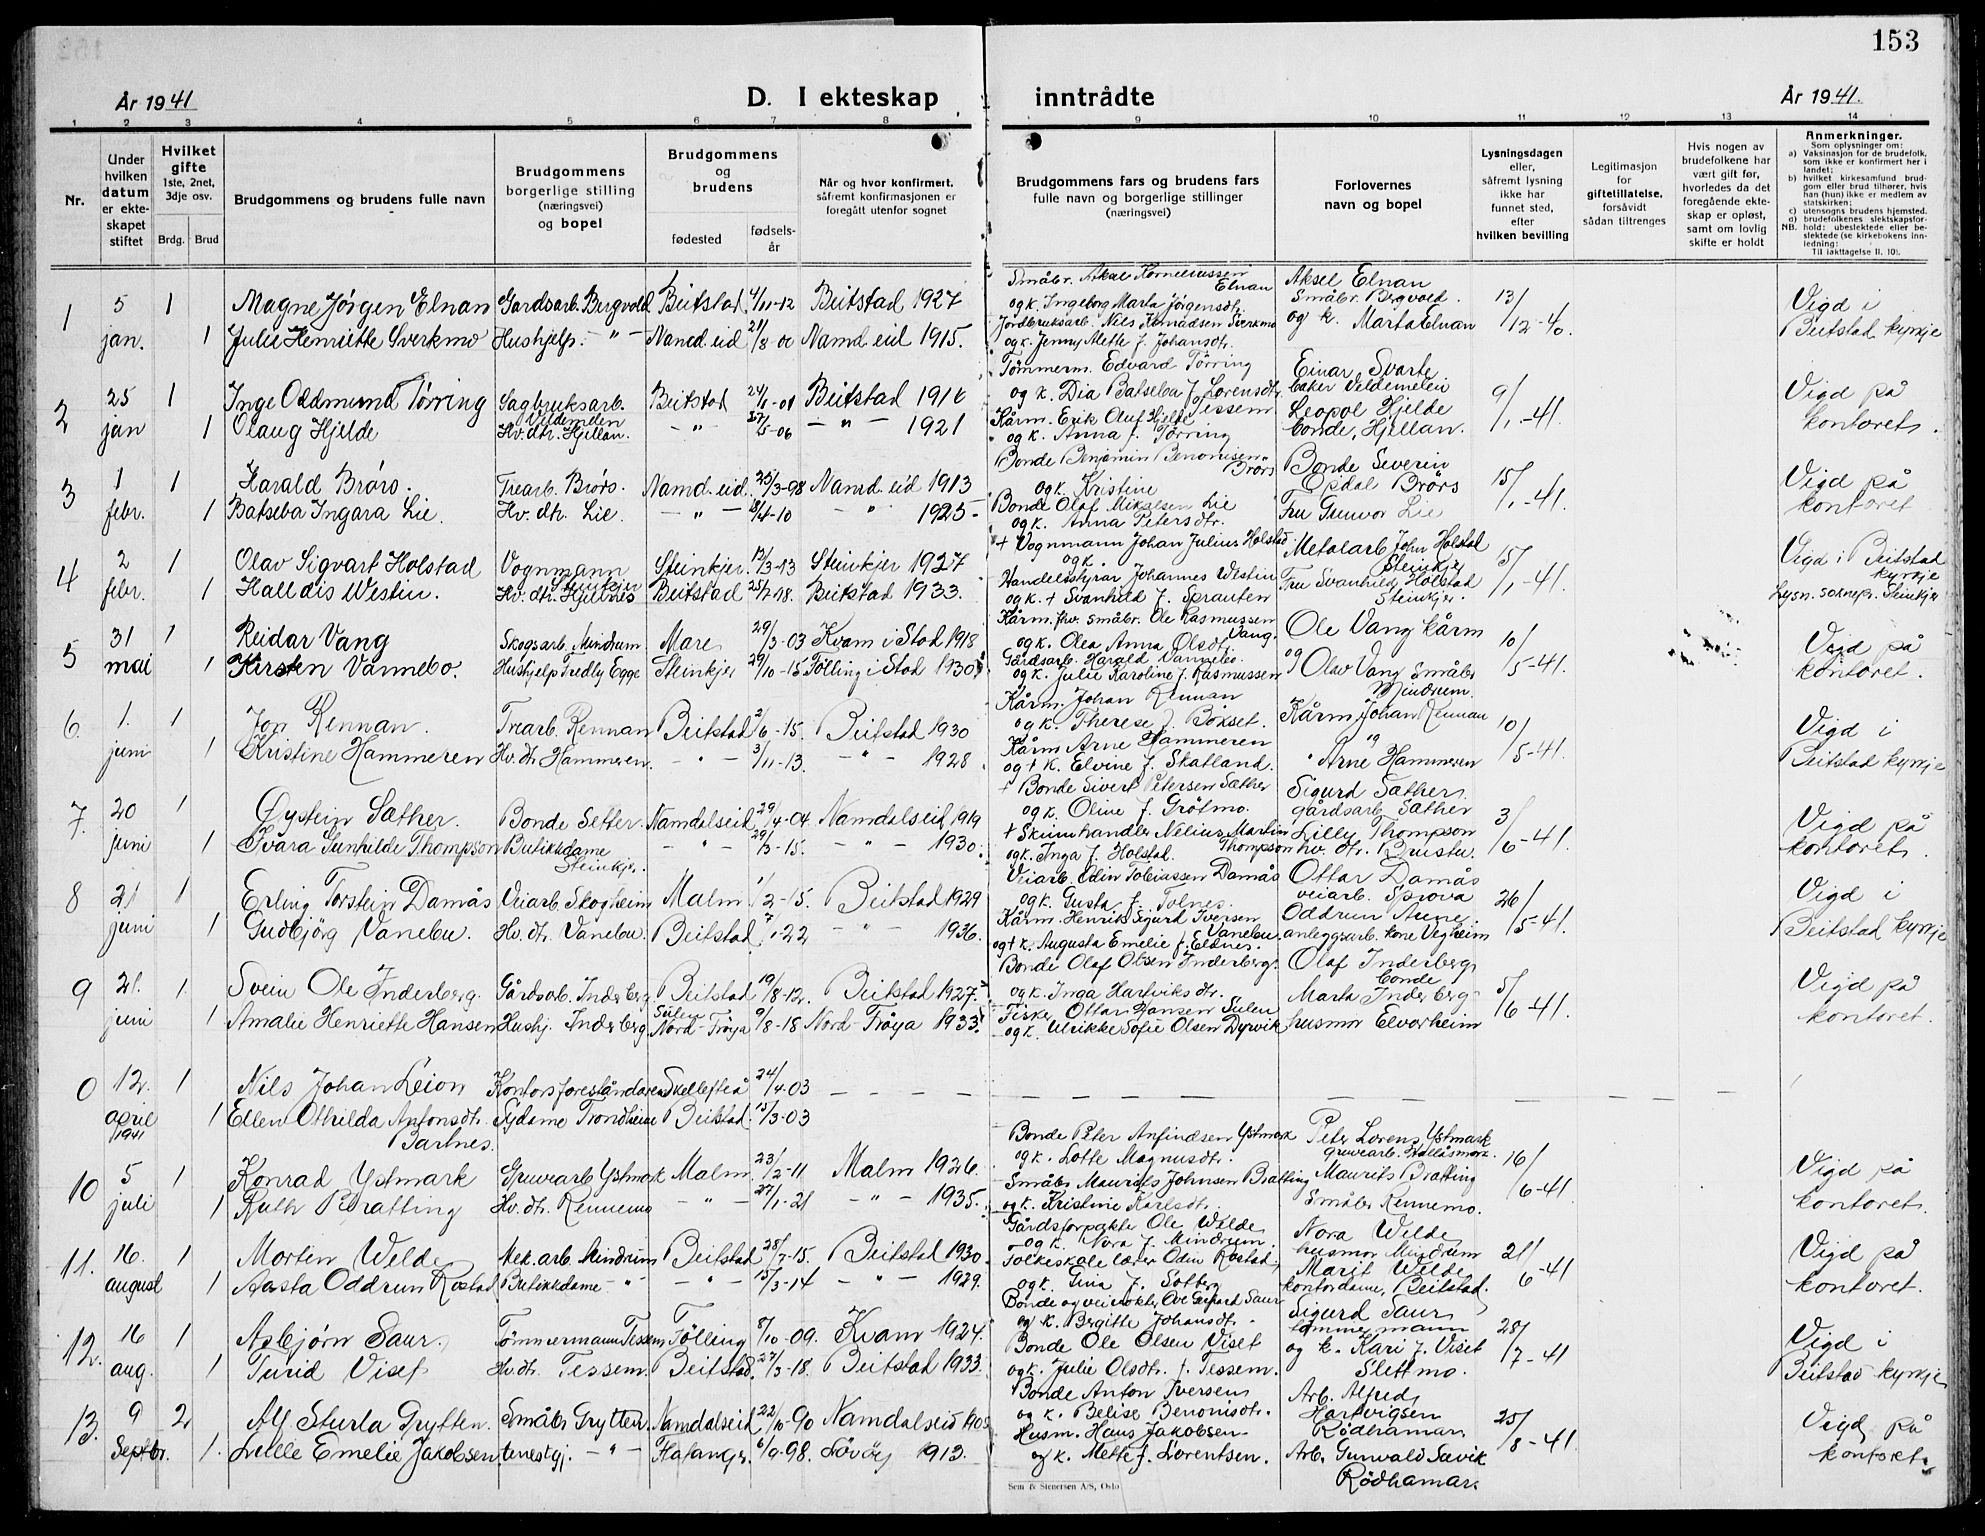 153
År 1941
D. I ekteskap inntrådte
År 1941.
1 2 3 4 5 6 7 8 9 10 11 12 13 14
Nr.
Under hvilken datum er ekteskapet stiftet
Hvilket gifte 1ste, 2net, 3dje osv.
Brdg. Brud
Brudgommens og brudens fulle navn
Brudgommens borgerlige stilling (næringsvei) og bopel
Brudgommens og brudens
fødested
fødselsår
Når og hvor konfirmert, såfremt konfirmasjonen er foregått utenfor sognet
Brudgommens fars og brudens fars fulle navn og borgerlige stillinger (næringsvei)
Forlovernes navn og bopel
Lysningsdagen eller, såfremt lysning ikke har funnet sted, efter hvilken bevilling
Legitimasjon for giftetillatelse, forsåvidt sådan tiltrenges
Hvis nogen av brudefolkene har vært gift før, hvorledes da det foregående ekteskap er opløst, samt om lovlig skifte er holdt
Anmerkninger.
Som oplysninger om:
a) Vaksinasjon for de brudefolk, som ikke er konfirmert her i landet;
b) hvilket kirkesamfund brudgom eller brud tilhører, hvis han (hun) ikke er medlem av statskirken;
c) utensogns brudens hjemsted.
d) brudefolkenes slektskapsforhold: ubeslektede eller beslektede (se kirkebokens innledning:
NB.
Til iakttagelse II. 10).
1 5 jan. 1 Magne Jörgen Elnan Gardsarb. Bergvold Beitstad 4/11-12 Beitstad 1927 Småbr. Aksel Korneliussen Elnan
og k. Ingeborg Marta Jörgensdtr. Aksel Elnan Småbr. Bergvold. og k. Marta Elnan 13/12-40. Vigd i Beitstad kyrkje
1 Julie Henriette Sverkmo Hushjelp. - " - Namd.eid 21/8-00 Namd.eid 1915. Jordbruksarb. Nils Konradsen Sverkmo
og k. Jenny Alette f. Johansdtr.
2 25 jan 1 Inge Oddmund Törring Sagbruksarb. Veldemelen Beitstad 24/1-01 Beitstad 1916 Tömmerm. Edvard Törring
og k. Dia Batseba f. Lorensdtr. Tessem Einar Svarte baker Veldemelen 9/1-41. Vigd på kontoret.
1 Olaug Hjelde Hv. dtr. Hjellan. - " - 1921 Kårm. Erik Oluf Hjelde
og k. Anna f. Törring Leopol Hjelde bonde, Hjellan.
3 1 febr. 1 Harald Brörs. Trearb. Brörs. Namd.eid. 25/3-98 Namd.eid 1913 Bonde Benjamin Benonisen Brörs
og k. Kristine Bonde Severin Opdal Brörs 15/1-41. Vigd på kontoret
1 Batseba Ingara Lie. Hv. dtr. Lie. - " - 8/4-10 " 1925 Bonde Olaf Mikalsen Lie
og k. Anna Petersdtr. Fru Gunvor Lie
4 2 febr. 1 Olav Sigvart Holstad Vognmann Steinkjer Steinkjer. 13/3-13 Steinkjer 1927 + Vognmann Johan Julius Holstad
og k. Metalarb. John Holstad Steinkjer 15/1-41. Vigd i Beitstad kyrkje
1 Halldis Westin. Hv. dtr. Hjellnes Beitstad Beitstad 1933. Handelsstyrar Johannes Westin
og k. + Svanhild f. Sprauten Fru Svanhild Holstad Steinkjer. Lysn. soknepr. Steinkjer
5 31 mai 1 Reidar Vang Skogsarb. Mindrum Mare 29/3-03 Kvam i Stod 1918 Kårm. fhv. småbr. Ole Rasmussen Vang.
og k. Olea Anna Olsdtr. Ole Vang kårm 10/5-41. Vigd på kontoret.
1 Kirsten Vannebo. Hushjelp Tredly Egge Steinkjer 29/10-15 Fölling i Stod 1930 Gårdsarb. Harald Vannebo.
og k. Julie Karoline f. Rasmussen og Olav Vang Småbr Mindrum.
6. 1. juni 1 Jon Rennan. Trearb. Rennan Beitstad 2/6-15. Beitstad 1930 Kårm. Johan Rennan
og k. Therese f. Bökset. Kårm. Johan Rennan 10/5-41. Vigd i Beitstad kyrkje
1 Kristine Hammeren Hv. dtr Hammeren. - " - 3/11-13. - " - 1928. Kårm Arne Hammeren
og + k. Elvine f. Skatland. og " Arne Hammeren
7. 20 juni 1 Øystein Sæther. Bonde Setter. Namdalseid 29/4-04. Namdalseid 1919 + Bonde Sivert Petersen Sæther
og k. Oline f. Grötmo. Sigurd Sæther gårdsarb. Sæther 3/6-41. Vigd på kontoret.
1 Svara Gunhilde Thompson Butikkdame Steinkjer. - " - 29/3-15. - " - 1930. + Skinnhandler Nelius Martin Thompson
og k. Inga f. Holstad. Lilly Thompson hv. dtr.
8 21 juni 1 Erling Torstein Damås Veiarb. Skogheim Malm 1/2-15. Beitstad 1929 Veiarb. Odin Tobiassen Damås
og k. Gusta f. Folnes. Ottar Damås veiarb. Sprova 26/5-41. Vigd i Beitstad kyrkje
1 Gudbjörg Vanebu. Hv. dtr. Vanebu. Beitstad 7/1-22 - " - 1936. Kårm. Henrik Sigurd Iversen Vanebu.
og + k. Augusta Emelie f. Eldnes. Oddrun Aune. anleggsarb. kone Vegheim
9 21. juni 1. Svein Ole Inderberg. Gårdsarb. Inderberg Beitstad 19/8-12. Beitstad 1927. Bonde Olaf Olsen Inderberg.
og k. Inga Hartviksdtr. Olaf Inderberg bonde 5/6-41. Vigd på kontoret.
1 Amalie Henriette Hansen Hushj. Inderberg Sulen Nord-Fröya 9/8-18 Nord-Fröya 1933. Fisker Ottar Hansen Sulen
og k. Ulrikke Sofie Olsen Dyrvik Marta Inderberg husmor Elvarheim
0 12. april 1941 1 Nils Johan Leion Kontorsforeståndaren Skellefteå 24/4-03 - - - -
1 Ellen Othilda Antonsdtr. Bartnes. Sydame Trondheim Beitstad. 15/3-03
10 5 juli 1 Konrad Ystmark Gruvearb Ystmark Malm. 23/2-11 Malm 1926. Bonde Peter Anfindsen Ystmark
og k. Lotte Magnusdtr. Peter Lorens Ystmark gruvearb. 16/6-41 Vigd på kontoret.
1 Ruth Bratting Hv. dtr. Rennemo - " - 27/1-21 - " - 1935. Småbr Maurits Johnsen Bratting
og k. Kristine Karlsdtr. Maurits Bratting Småbr Rennemo.
11. 16. august 1 Morten Welde Mek. arb. Mindrum Beitstad 28/7-15. Beitstad 1930. Gårdsforpakter Ole Welde
og k. Nora f. Mindrum. Nora Welde husmor Mindrum 21/6-41 Vigd på kontoret.
1 Aasta Oddrun Rostad. Butikkdame - " - - " - 15/3-14 - " - 1929. Folkeskolelærer Odin Rostad
og k. Gina f. Solberg Marit Welde kontordame, Beitstad.
12. 16 aug. 1 Asbjørn Saur. Tömmermann Tessem Fölling 8/10-09. Kvam 1924. Bonde og veivokter Ove Gerhard Saur
og k. Birgitte Johansdtr. Sigurd Saur tömmermann 28/7-41 Vigd i Beitstad kyrkje
1 Turid Viset Hv. dtr. Tessem. Beitstad. 27/3-18. Beitstad 1933. Bonde Ole Olsen Viset
og k. Julie Olsdtr. f. Tessem. og k. Kari f. Viset Slettmo.
13. 9 Septbr. 2 Alf Sturla Grytten. Småbr Grytten. Namdalseid 22/10-90 Namdalseid 1905 Bonde Anton Iversen
og k. Belise Benonisdtr. Arb. Alfred Hartvigsen Rödhamar. 25/8-41. Vigd på kontoret.
1. Lille Emelie Jakobsen. tenestgj. - " - 6/9-98. 1913. Husm. Hans Jakobsen
og k. Mette f. Lorentsen. Arb. Gunvald Sævik Rödhamar.
Sem & Stenersen A/S, Oslo